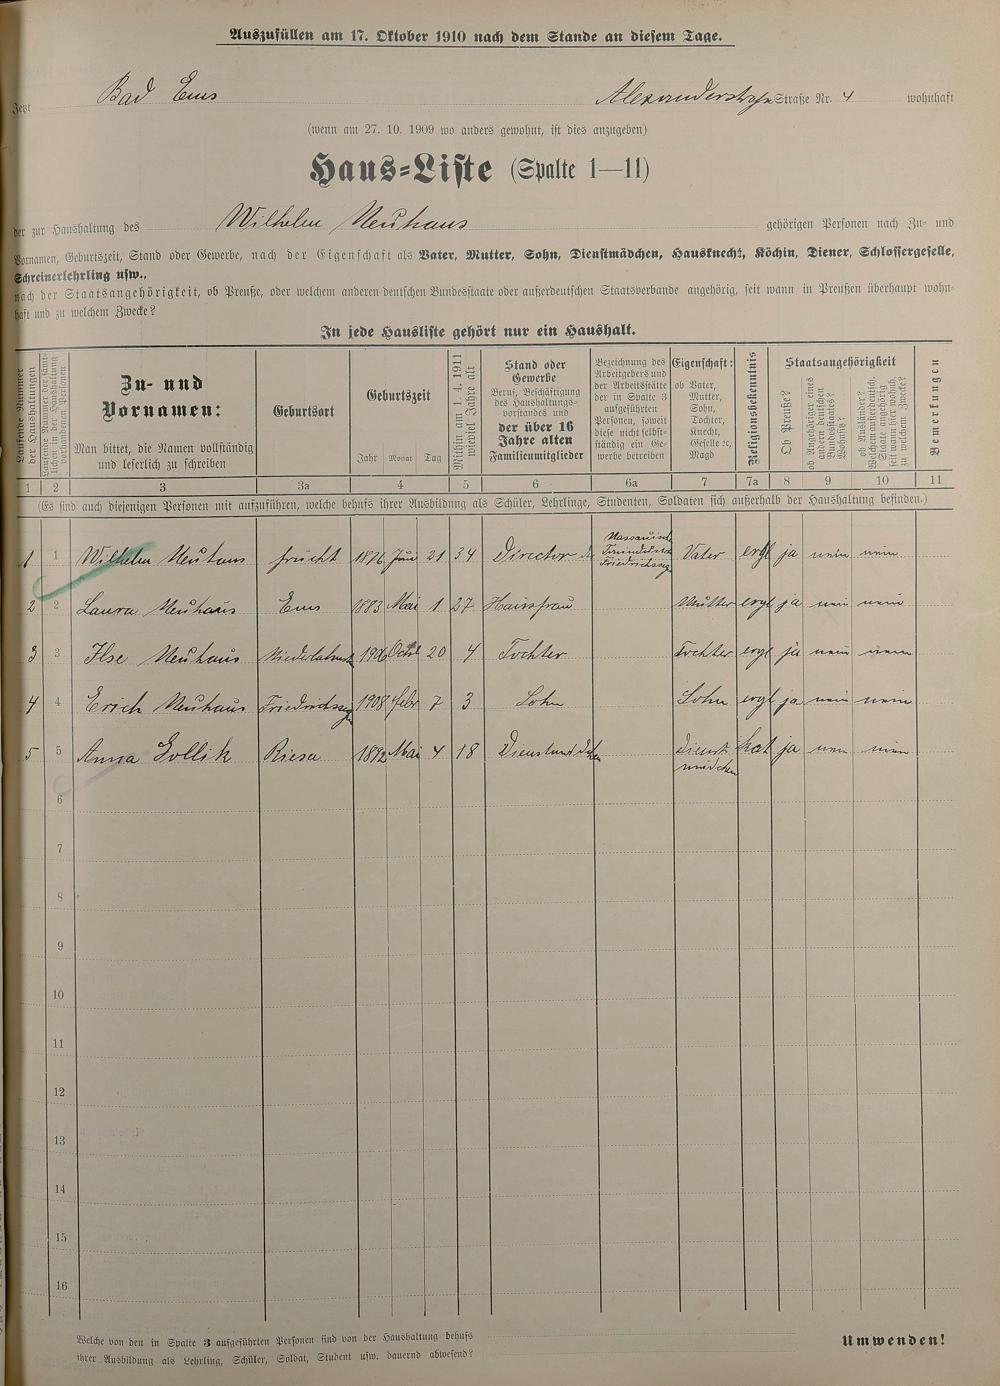 Auszufüllen am 17. Oktober 1910 nach dem Stande an diesem Tage.
Jetzt Bad Ems Alexanderstraße Straße Nr. 4 wohnhaft
(wenn am 27. 10. 1909 wo anders gewohnt, ist dies anzugeben)
Haus=Liste (Spalte 1—11)
der zur Haushaltung des Wilhelm Neuhaus gehörigen Personen nach Zu- und
Vornamen, Geburtszeit, Stand oder Gewerbe, nach der Eigenschaft als Vater, Mutter, Sohn, Dienstmädchen, Hausknecht, Köchin, Diener, Schlossergeselle,
Schreinerlehrling usw.,
nach der Staatsangehörigkeit, ob Preuße, oder welchem anderen deutschen Bundesstaate oder außerdeutschen Staatsverbande angehörig, seit wann in Preußen überhaupt wohn-
haft und zu welchem Zwecke?
In jede Hausliste gehört nur ein Haushalt.
Laufende Nummer
der Haushaltungen
Laufende Nummer der sämt-
lichen in der Haushaltung
vorhandenen Personen
Zu- und
Vornamen:
Man bittet, die Namen vollständig
und leserlich zu schreiben
Geburtsort
Geburtszeit
Jahr Monat Tag
Mithin am 1. 4. 1911
wieviel Jahre alt
Stand oder
Gewerbe
Beruf, Beschäftigung
des Haushaltungs-
vorstandes und
der über 16
Jahre alten
Familienmitglieder
Bezeichnung des
Arbeitgebers und
der Arbeitsstätte
der in Spalte 3
aufgeführten
Personen, soweit
diese nicht selbst-
ständig ein Ge-
werbe betreiben
Eigenschaft:
ob Vater,
Mutter,
Sohn,
Tochter,
Knecht,
Geselle ꝛc,
Magd
Religionsbekenntnis
Staatsangehörigkeit
Ob Preuße?
ob Angehöriger eines
andern deutschen
Bundesstaates?
Wohnsitz?
ob Ausländer?
Welchem außerdeutsch.
Staate angehörig
seit wann hier wohnh.
zu welchem Zwecke?
Bemerkungen
1 2 3 3a 4 5 6 6a 7 7a 8 9 10 11
(Es sind auch diejenigen Personen mit aufzuführen, welche behufs ihrer Ausbildung als Schüler, Lehrlinge, Studenten, Soldaten sich außerhalb der Haushaltung befinden.)
1 1 Wilhelm Neuhaus Frücht 1876 Juni 21 34 Director Friedrichssegen Vater evgl ja nein nein
2 2 Laura Neuhaus Ems 1883 Mai 1 27 Hausfrau Mutter evgl ja nein nein
3 3 Ilse Neuhaus Niederlahnstein 1906 Octbr 20 4 Tochter Tochter evgl ja nein nein
4 4 Erich Neuhaus Friedrichssegen 1908 Febr 7 3 Sohn Sohn evgl ja nein nein
5 5 Anna Gollik Riesa 1892 Mai 4 18 Dienstmädchen Dienst kat ja nein nein
mädchen
6
7
8
9
10
11
12
13
14
15
16
Welche von den in Spalte 3 aufgeführten Personen sind von der Haushaltung behufs
ihrer Ausbildung als Lehrling, Schüler, Soldat, Student usw. dauernd abwesend?
Umwenden!